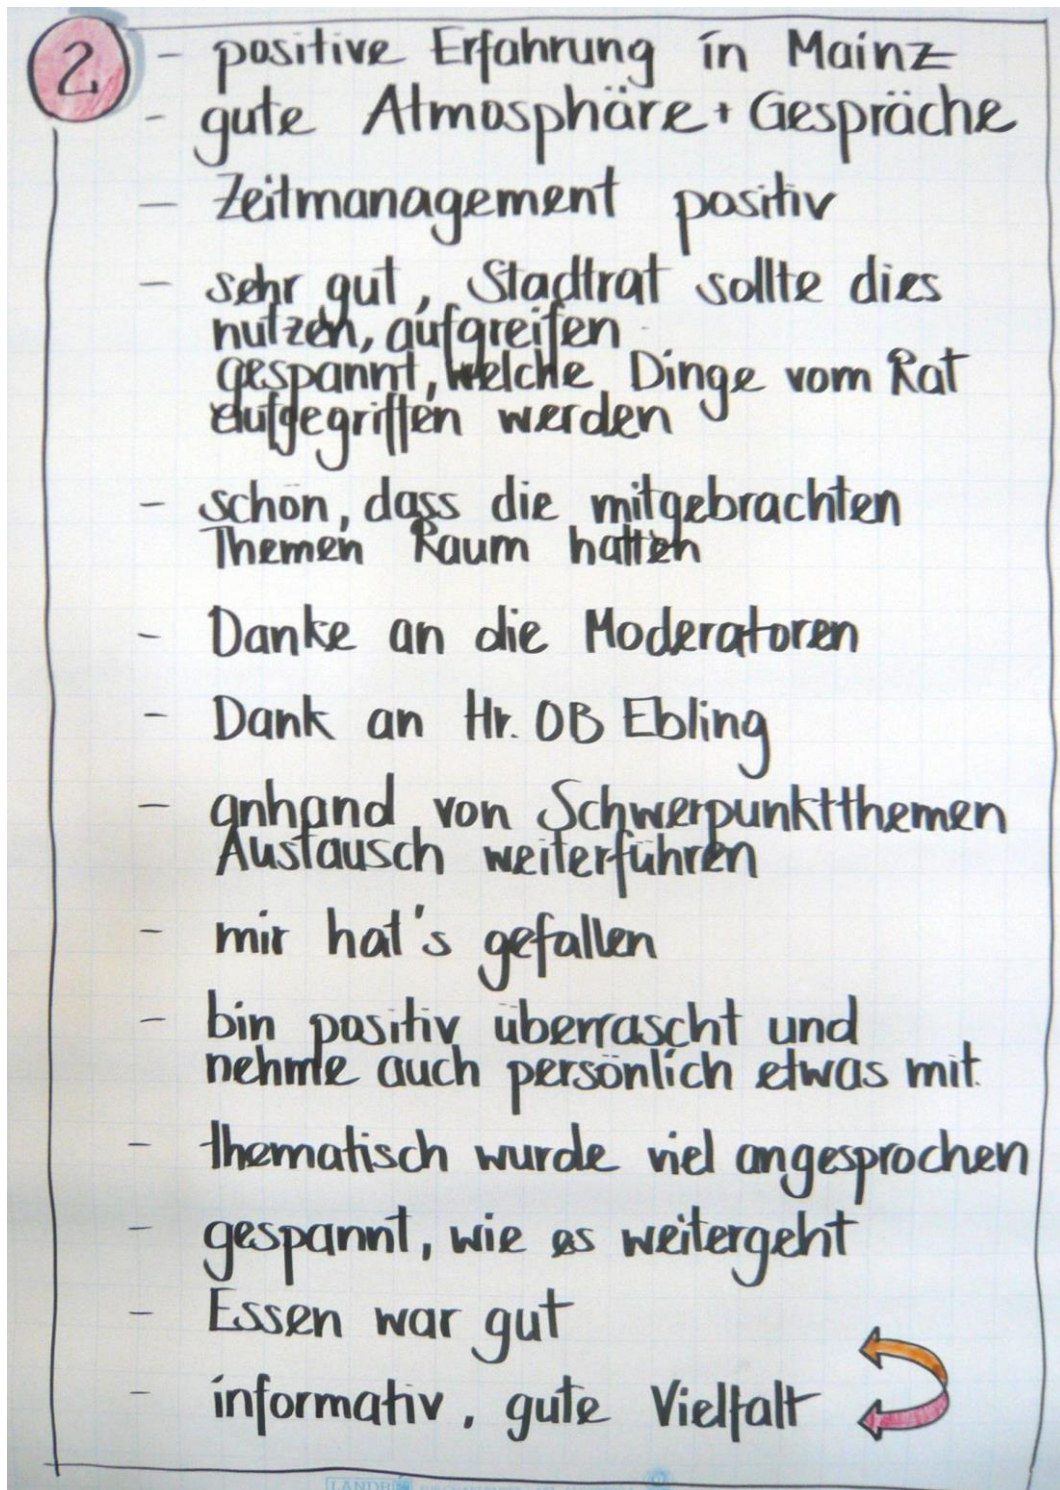 2
- positive Erfahrung in Mainz
- gute Atmosphäre + Gespräche
- Zeitmanagement positiv
- sehr gut, Stadtrat sollte dies
nutzen, aufgreifen
gespannt, welche Dinge vom Rat
aufgegriffen werden
- schön, dass die mitgebrachten
Themen Raum hatten
- Danke an die Moderatoren
- Dank an Hr. OB Ebling
- anhand von Schwerpunktthemen
Austausch weiterführen
- mir hat's gefallen
- bin positiv überrascht und
nehme auch persönlich etwas mit.
- thematisch wurde viel angesprochen
- gespannt, wie es weitergeht
- Essen war gut
- informativ, gute Vielfalt